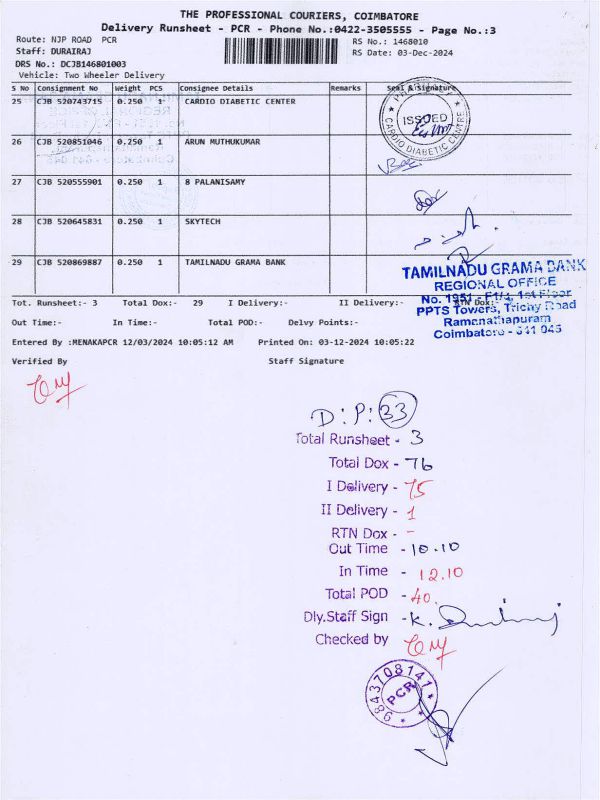 THE PROFESSIONAL COURIERS, COIMBATORE
Delivery Runsheet - PCR - Phone No.:0422-3505555 - Page No.:3
Route: NJP ROAD PCR
RS No.: 1468010
Staff: DURAIRAJ
RS Date: 03-Dec-2024
DRS No.: DCJB146801003
Vehicle: Two Wheeler Delivery
S No Consignment No Weight PCS Consignee Details Remarks Seal & Signature
25 CJB 520743715 0.250 1 CARDIO DIABETIC CENTER
ISSUED
CARDIO DIABETIC CENTRE
26 CJB 520851046 0.250 1 ARUN MUTHUKUMAR
27 CJB 520555901 0.250 1 8 PALANISAMY
28 CJB 520645831 0.250 1 SKYTECH
29 CJB 520869887 0.250 1 TAMILNADU GRAMA BANK
TAMILNADU GRAMA BANK
REGIONAL OFFICE
No. 1951 - F1/4, 1st Floor
PPTS Towers, Trichy Road
Ramanathapuram
Coimbatore - 641 045
Tot. Runsheet:- 3 Total Dox:- 29 I Delivery:- II Delivery:- RTN Dox:-
Out Time:- In Time:- Total POD:- Delvy Points:-
Entered By :MENAKAPCR 12/03/2024 10:05:12 AM Printed On: 03-12-2024 10:05:22
Verified By Staff Signature
D:P: 33
Total Runsheet - 3
Total Dox - 76
I Delivery - 75
II Delivery - 1
RTN Dox - -
Out Time - 10.10
In Time - 12.10
Total POD - 40
Dly.Staff Sign - K.
Checked by
9843708141
PCR